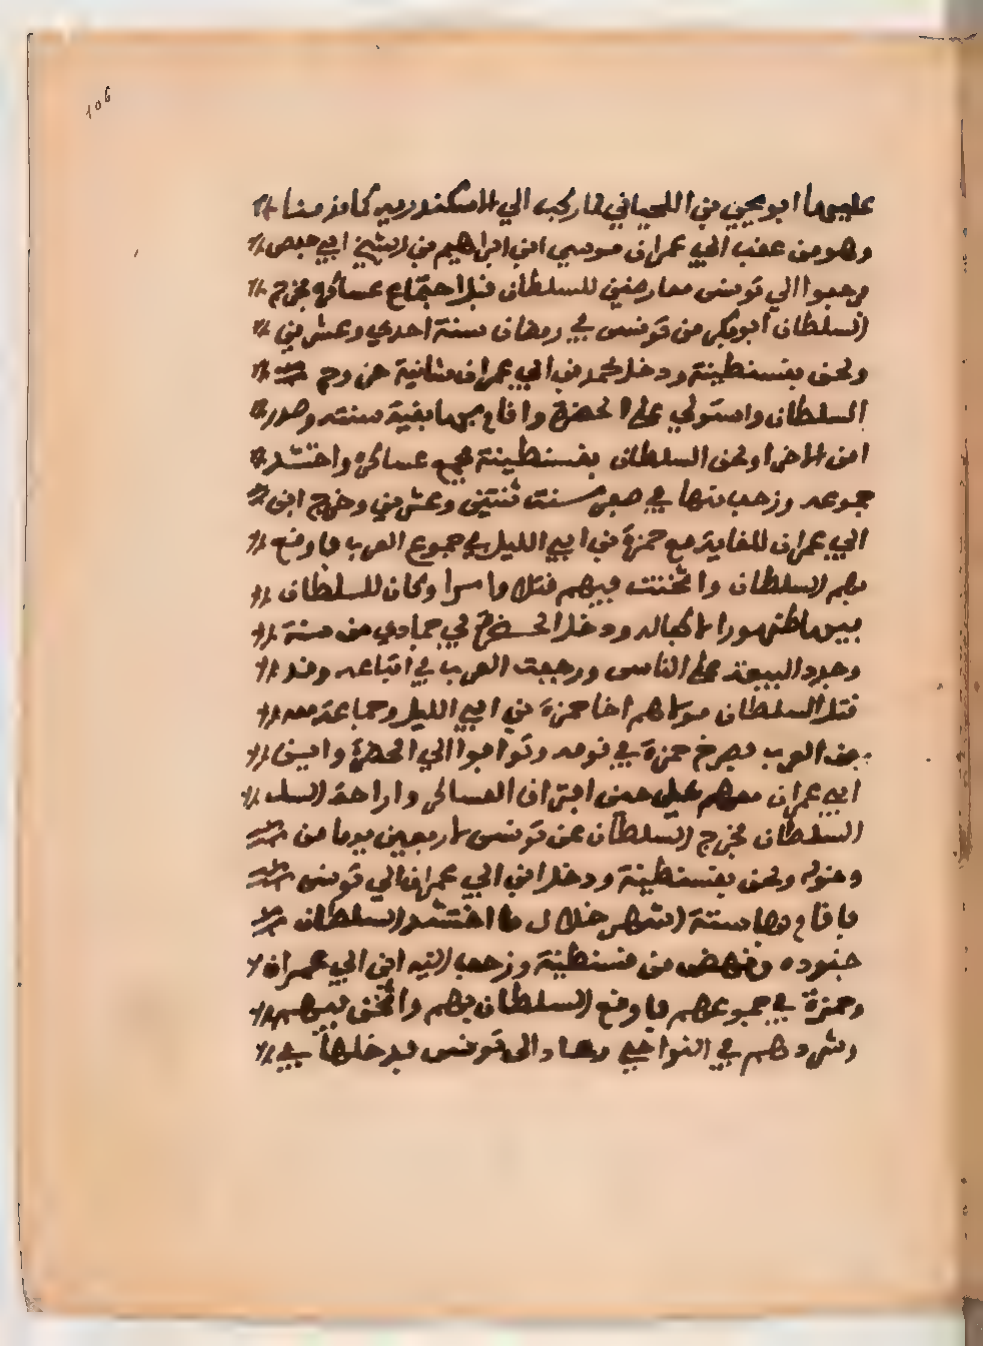 106
عليهما ابو يحيى بن اللحياني لما ركب الي الاسكندرية كما ذكرنا
وهو من عقب ابي عمران موسى ابن ابراهيم بن الشيخ ابي حفص
وزحفوا الي تونس معارضين للسلطان قبل اجتماع عساكره فخرج
السلطان ابو بكر من تونس في رمضان سنة احدي وعشرين
ولحق بقسنطينة ودخل محمد بن ابي عمران ثانية من وج
السلطان واستولي على الحضرة واقام بها بقية سنته وصدر
من الاخرا ولحق السلطان بقسنطينة فجمع عساكره واحتشد
جموعه وزحف منها في صفر سنت ثنتين وعشرين وخرج ابن
ابي عمران للقايه مع حمزة بن ابي الليل في جموع العرب فاوقع
بهم السلطان واثخنت فيهم قتلا واسرا وكان للسلطان
فيها ودخل الحضرة في جمادي من سنة
وجدد البيعة على الناس ورجعت العرب في اتباعه وقد
قتل السلطان مولاهم اخا حمزة بن ابي الليل وجماعة معه
العرب فصرخ حمزة في قومه وتوافوا الي الحضرة وابن
ابي عمران معهم على حين افتراق العساكر واراحة السلـ
السلطان فخرج السلطان عن تونس لاربعين يوما من
دخوله ولحق بقسنطينة ودخل ابن ابي عمران الي تونس
فاقام بها ستة اشهر خلال ما احتشد السلطان
جنوده ونهض من قسنطينة وزحف اليه ابن ابي عمران
وحمزة في جموعهم فاوقع السلطان بهم واثخن فيهم
وشردهم في النواحي وعاد الى تونس فدخلها في